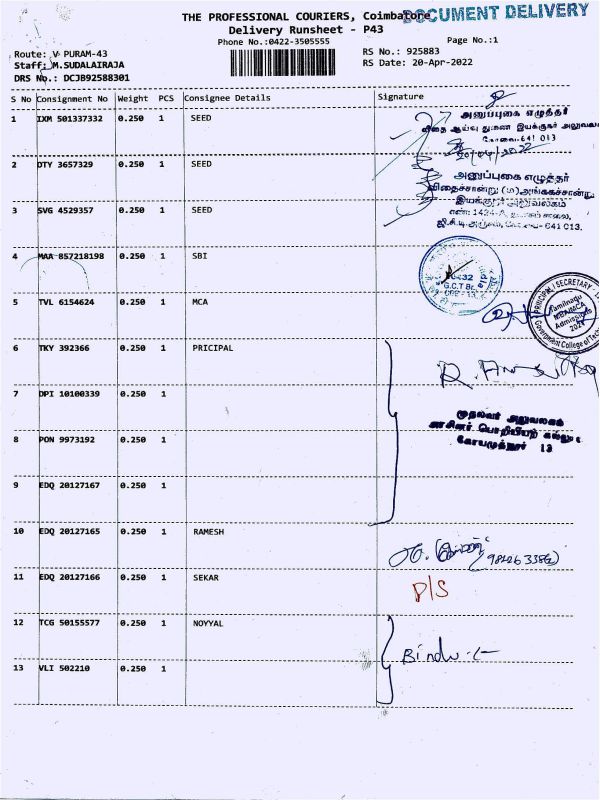 THE PROFESSIONAL COURIERS, Coimbatore
DOCUMENT DELIVERY
Delivery Runsheet - P43
Phone No.:0422-3505555
Page No.:1
Route: V PURAM-43
RS No.: 925883
Staff: M.SUDALAIRAJA
RS Date: 20-Apr-2022
DRS No.: DCJB92588301
S No Consignment No Weight PCS Consignee Details Signature
1 IXM 501337332 0.250 1 SEED
அனுப்புகை எழுத்தர்
விதை ஆய்வு துணை இயக்குநர் அலுவலகம்
கோவை-641 013
20/04/2022
2 DTY 3657329 0.250 1 SEED
அனுப்புகை எழுத்தர்
விதைச்சான்று (ம) அங்ககச்சான்று
இயக்குநர் அலுவலகம்
641 013.
3 SVG 4529357 0.250 1 SEED
4 MAA 857218198 0.250 1 SBI
G.C.T Br.
5 TVL 6154624 0.250 1 MCA
PRINCIPAL / SECRETARY
Tamilnadu
MBA/MCA
Admissions
Government College of Tech
6 TKY 392366 0.250 1 PRICIPAL
7 DPI 10100339 0.250 1
முதல்வர் அலுவலகம்
அரசினர் பொறியியற் கல்லூரி
கோயமுத்தூர் 13
8 PON 9973192 0.250 1
9 EDQ 20127167 0.250 1
10 EDQ 20127165 0.250 1 RAMESH
11 EDQ 20127166 0.250 1 SEKAR
P/S
12 TCG 50155577 0.250 1 NOYYAL
Bindu
13 VLI 502210 0.250 1